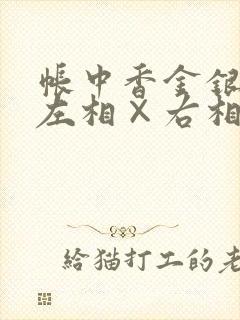 帳中香金銀
左相×右相
給猫打工的老